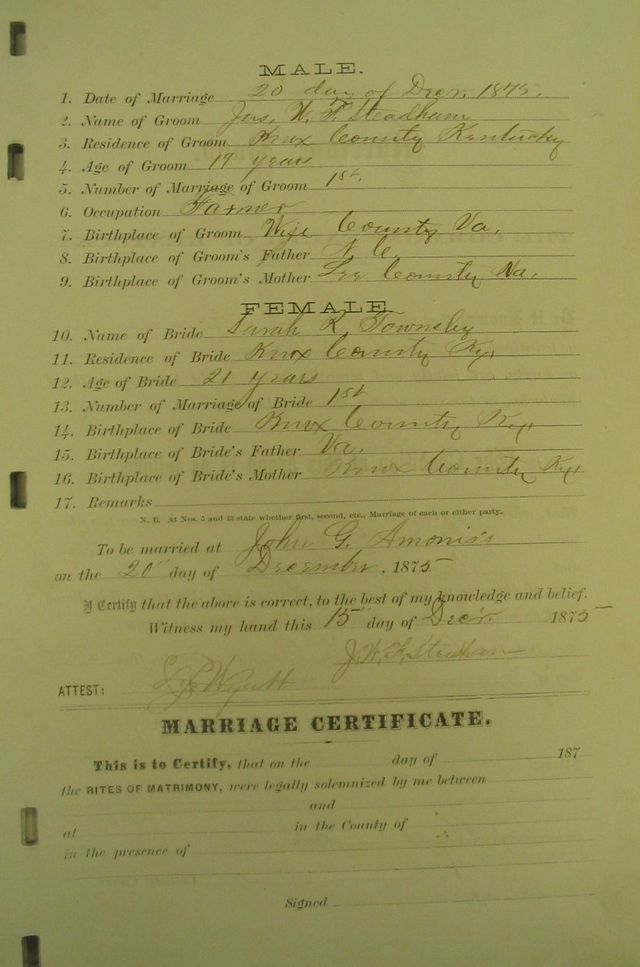 MALE.
1. Date of Marriage 20 day of Decr. 1875.
2. Name of Groom Jas. W. F. Steadham
3. Residence of Groom Knox County Kentucky
4. Age of Groom 19 years
5. Number of Marriage of Groom 1st.
6. Occupation Farmer
7. Birthplace of Groom Wise County Va.
8. Birthplace of Groom's Father N. C.
9. Birthplace of Groom's Mother Lee County Va.
FEMALE.
10. Name of Bride Sarah R. Townsley
11. Residence of Bride Knox County Ky
12. Age of Bride 21 years
13. Number of Marriage of Bride 1st
14. Birthplace of Bride Knox County Ky
15. Birthplace of Bride's Father Va.
16. Birthplace of Bride's Mother Knox County Ky
17. Remarks
N. B. At Nos. 5 and 13 state whether first, second, etc., Marriage of each or either party.
To be married at John G. Amonis's
on the 20" day of December, 1875
I Certify that the above is correct, to the best of my knowledge and belief.
Witness my hand this 15" day of Decr. 1875
J. W. F. Steadham
ATTEST: Wyatt
MARRIAGE CERTIFICATE.
This is to Certify, that on the day of 187
the RITES OF MATRIMONY, were legally solemnized by me between
and
at in the County of
in the presence of
Signed